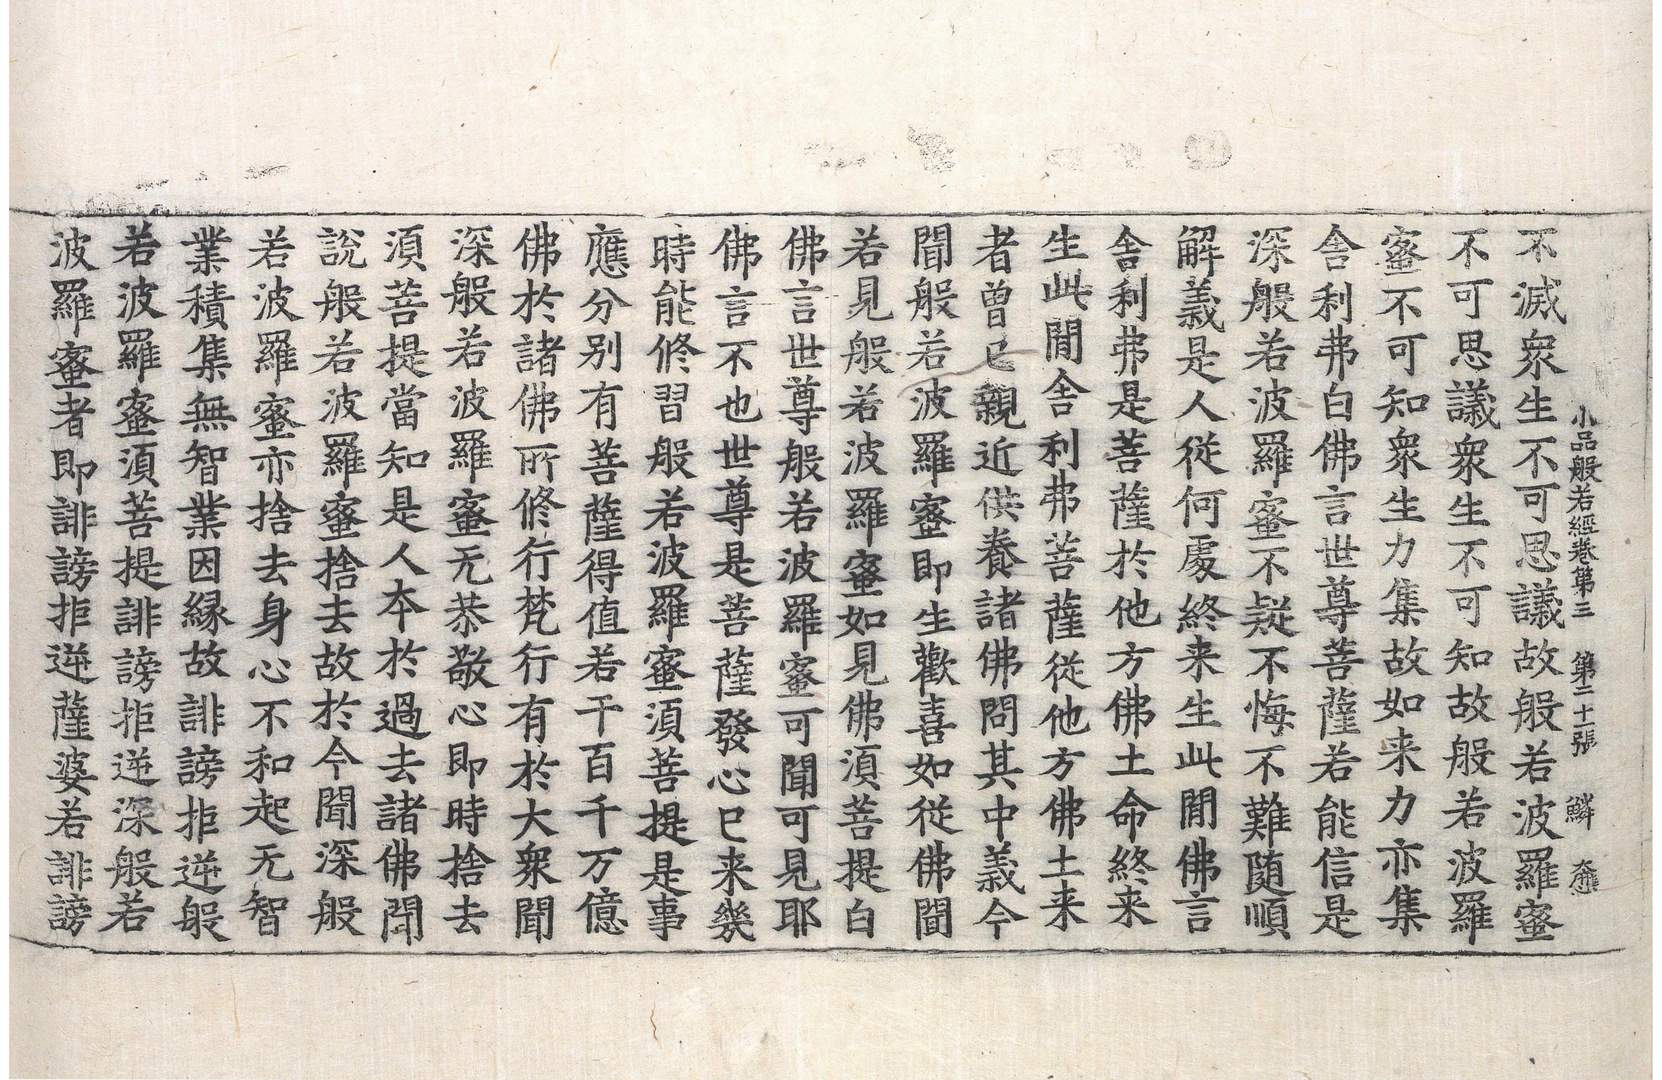 小品般若經卷第三　第二十張　鱗
不滅衆生不可思議故般若波羅蜜
不可思議衆生不可知故般若波羅
蜜不可知衆生力集故如来力亦集
舎利弗白佛言世尊菩薩若能信是
深般若波羅蜜不疑不悔不難随順
解義是人從何處終来生此閒佛言
舎利弗是菩薩於他方佛土命終来
生此閒舎利弗菩薩從他方佛土来
者曾已親近供養諸佛問其中義今
聞般若波羅蜜即生歡喜如從佛聞
若見般若波羅蜜如見佛湏菩提白
佛言世尊般若波羅蜜可聞可見耶
佛言不也世尊是菩薩發心已来幾
時能修習般若波羅蜜湏菩提是事
應分別有菩薩得值若干百千万億
佛於諸佛所修行梵行有於大衆聞
深般若波羅蜜无恭敬心即時捨去
湏菩提當知是人夲於過去諸佛聞
說般若波羅蜜捨去故於今聞深般
若波羅蜜亦捨去身心不和起无智
業積集無智業因縁故誹謗拒逆般
若波羅蜜湏菩提誹謗拒逆深般若
波羅蜜者即誹謗拒逆薩婆若誹謗